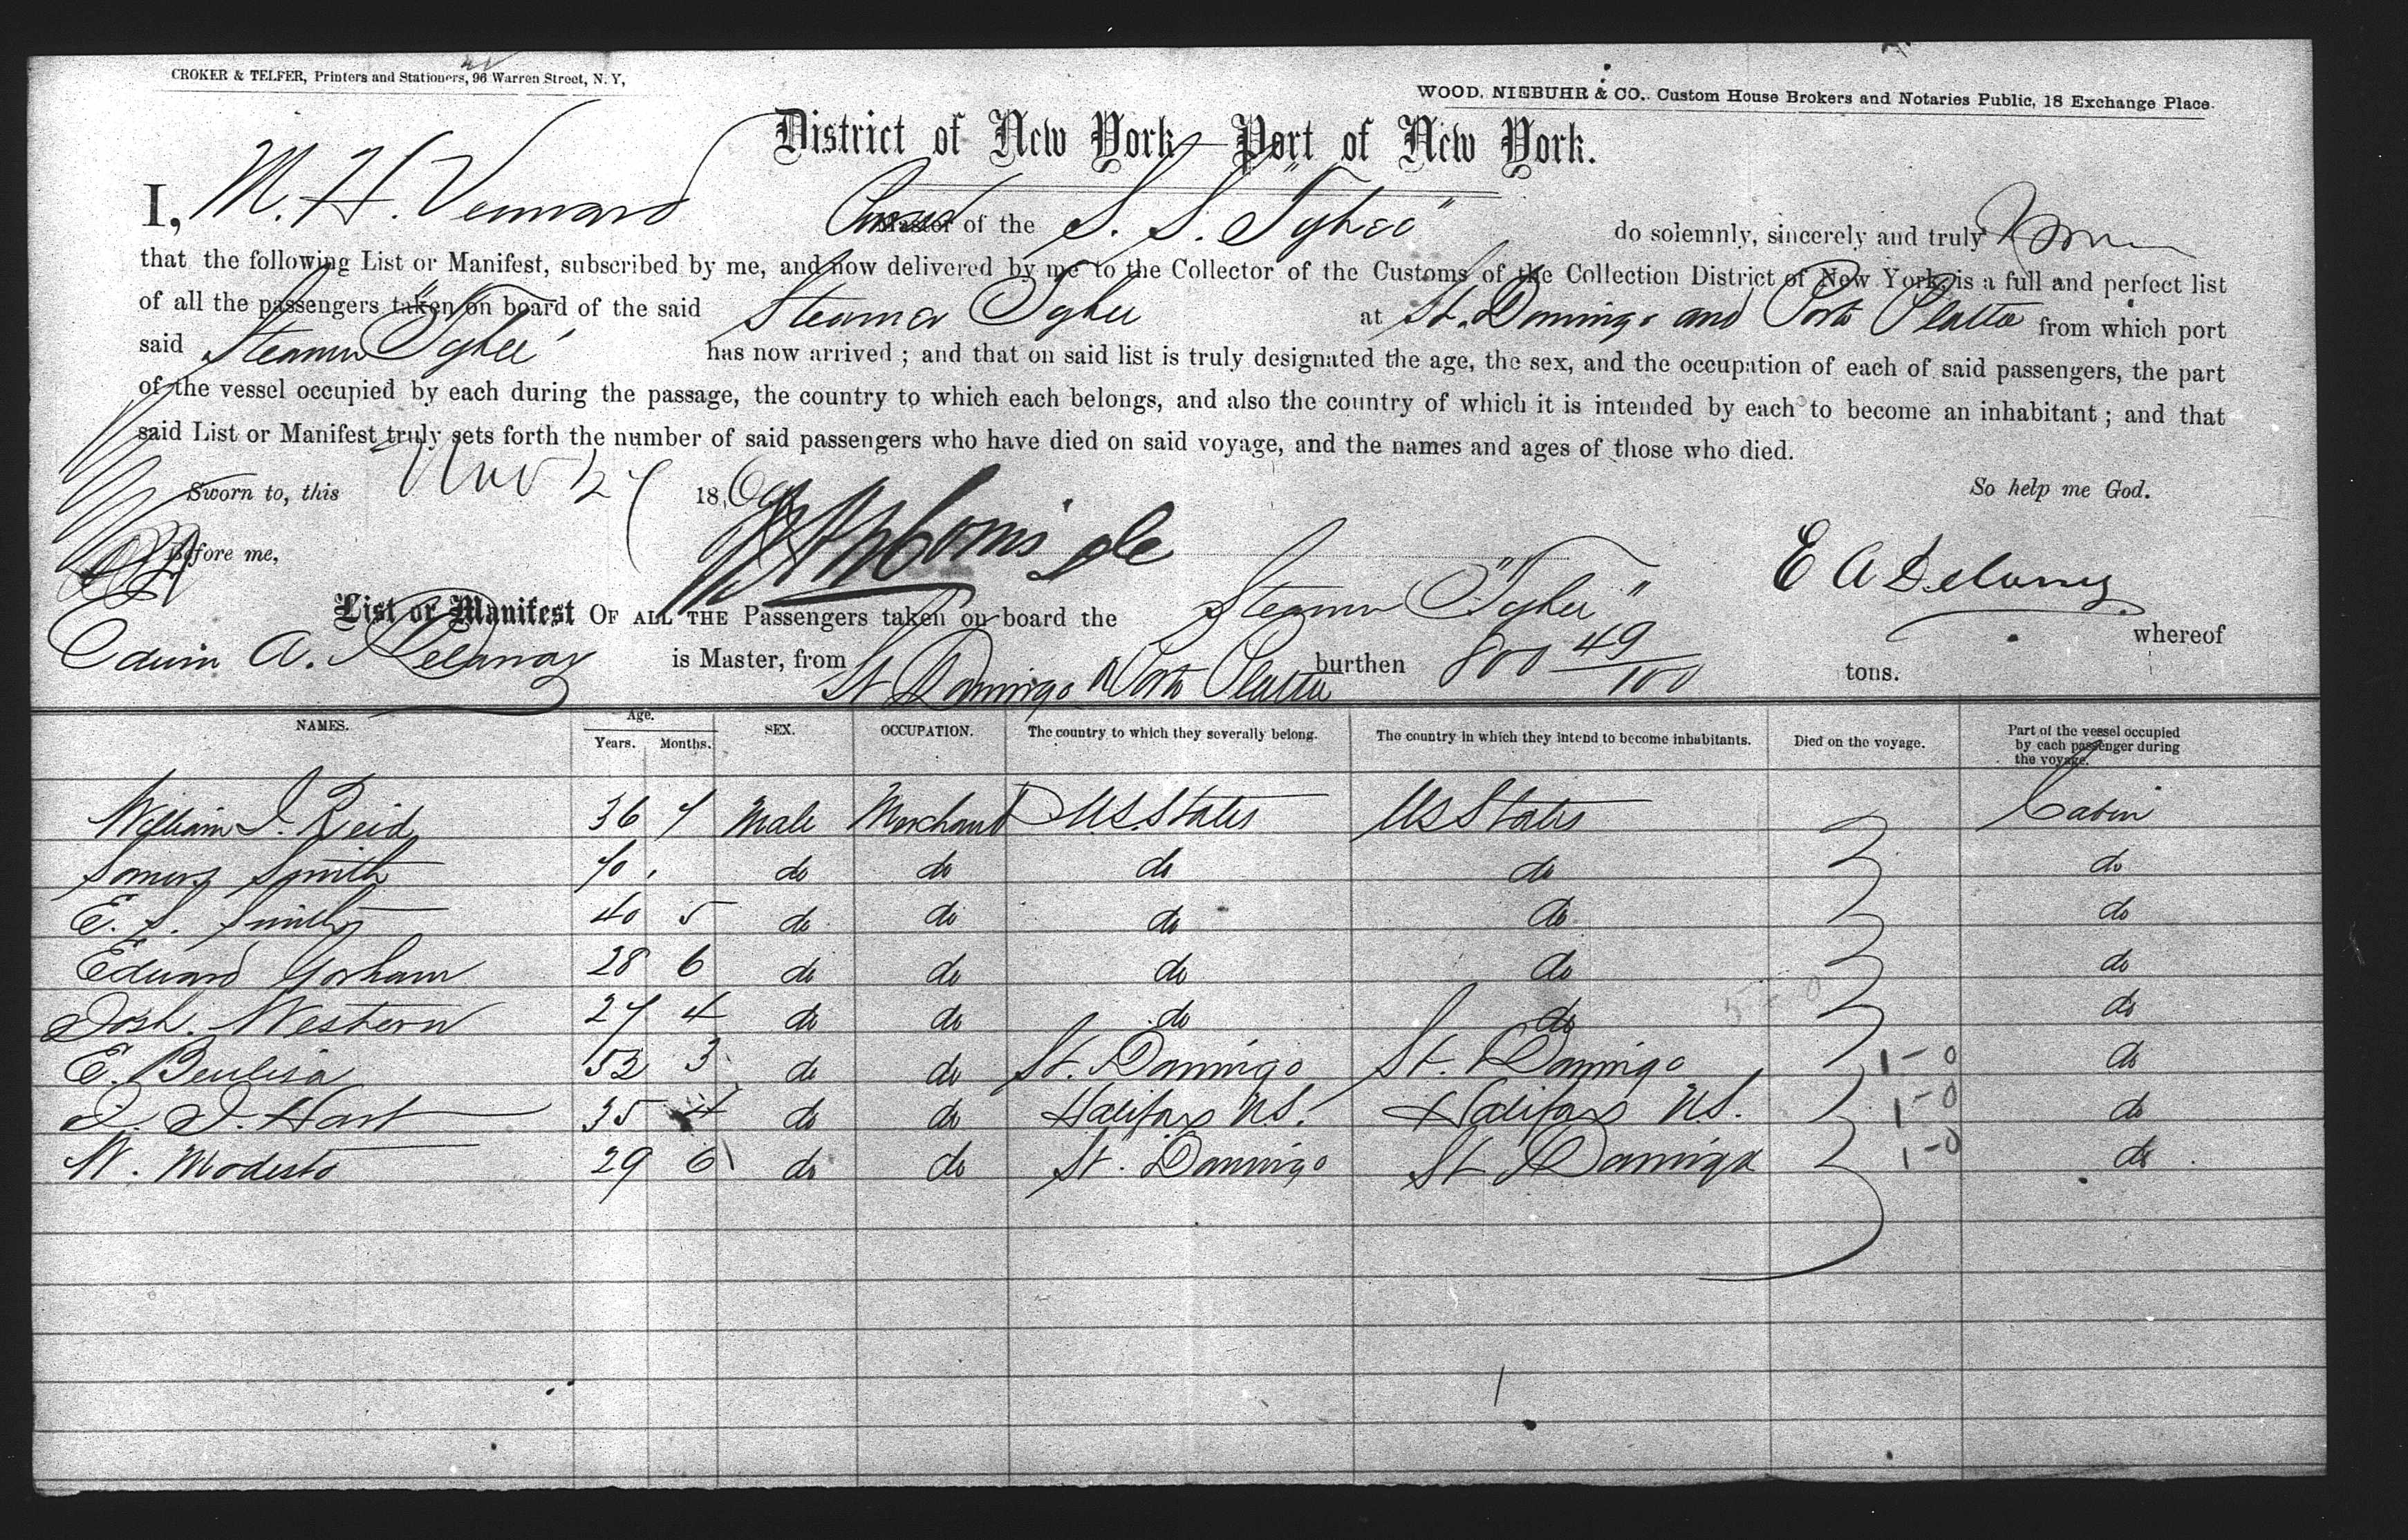 CROKER & TELFER, Printers and Stationers, 96 Warren Street, N. Y,
WOOD, NIEBUHR & CO., Custom House Brokers and Notaries Public, 18 Exchange Place.
District of New York—Port of New York.
I, M. H. Vennard Master of the S. S. "Tybee" do solemnly, sincerely and truly
that the following List or Manifest, subscribed by me, and now delivered by me to the Collector of the Customs of the Collection District of New York, is a full and perfect list
of all the passengers taken on board of the said Steamer Tybee at St. Domingo and Porto Platta from which port
said Steamer "Tybee" has now arrived ; and that on said list is truly designated the age, the sex, and the occupation of each of said passengers, the part
of the vessel occupied by each during the passage, the country to which each belongs, and also the country of which it is intended by each to become an inhabitant ; and that
said List or Manifest truly sets forth the number of said passengers who have died on said voyage, and the names and ages of those who died.
Sworn to, this Nov 27 1869 So help me God.
Before me, E A Delanoy
List or Manifest OF ALL THE Passengers taken on board the Steamer "Tybee" whereof
Edwin A. Delanoy is Master, from St Domingo & Porto Platta burthen 800 49/100 tons.
NAMES. Age. Years. Months. SEX. OCCUPATION. The country to which they severally belong. The country in which they intend to become inhabitants. Died on the voyage. Part of the vessel occupied by each passenger during the voyage.
William J. Reid 36 7 Male Merchant U.S. States US States Cabin
Smith 70 do do do do do
E. S. Smith 40 5 do do do do do
Edward Gorham 28 6 do do do do do
Josh. Western 27 4 do do do do do
E. 52 3 do do St. Domingo St. Domingo 1-0 do
J. J. Hart 35 4 do do Halifax N.S. Halifax N.S. 1-0 do
N. Modesto 29 6 do do St. Domingo St Domingo 1-0 do